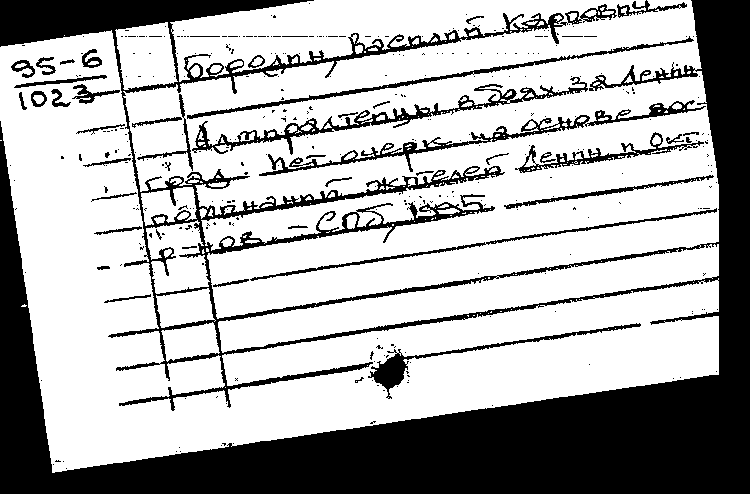 95-6
1023
Бородин, Василий Карпович
Адмиралтейцы в боях за Ленин-
град: Лет. очерк на основе вос-
поминаний жителей Ленин. и Окт.
р-нов. – СПб, 1995